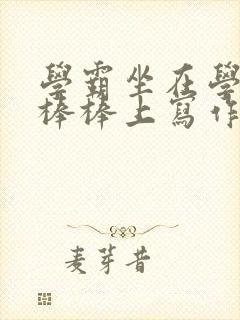 學霸坐在學
棒棒上寫作
麦芽昔